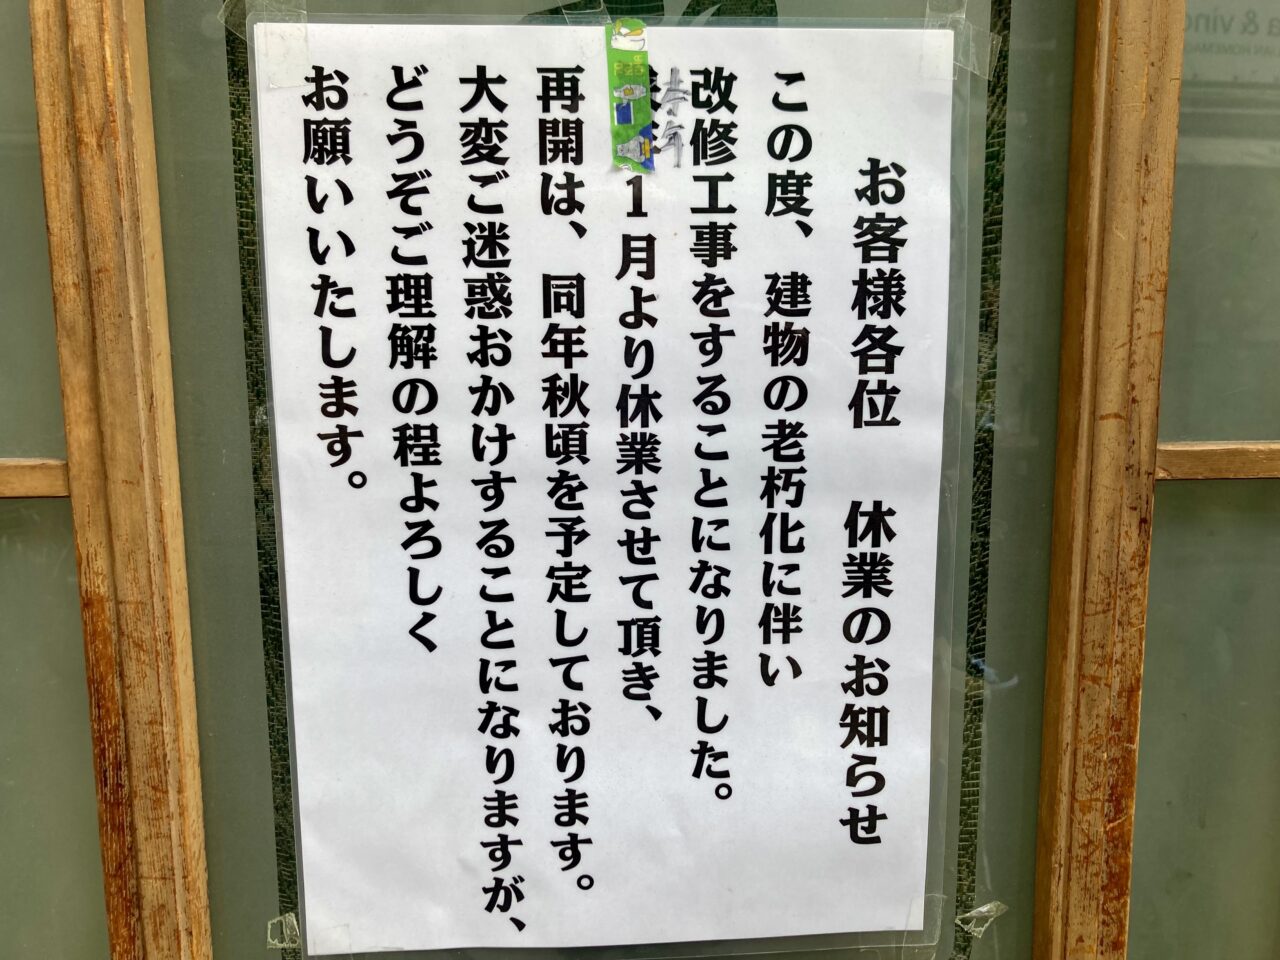 お客様各位　休業のお知らせ
この度、建物の老朽化に伴い
改修工事をすることになりました。
1月より休業させて頂き、
再開は、同年秋頃を予定しております。
大変ご迷惑おかけすることになりますが、
どうぞご理解の程よろしく
お願いいたします。